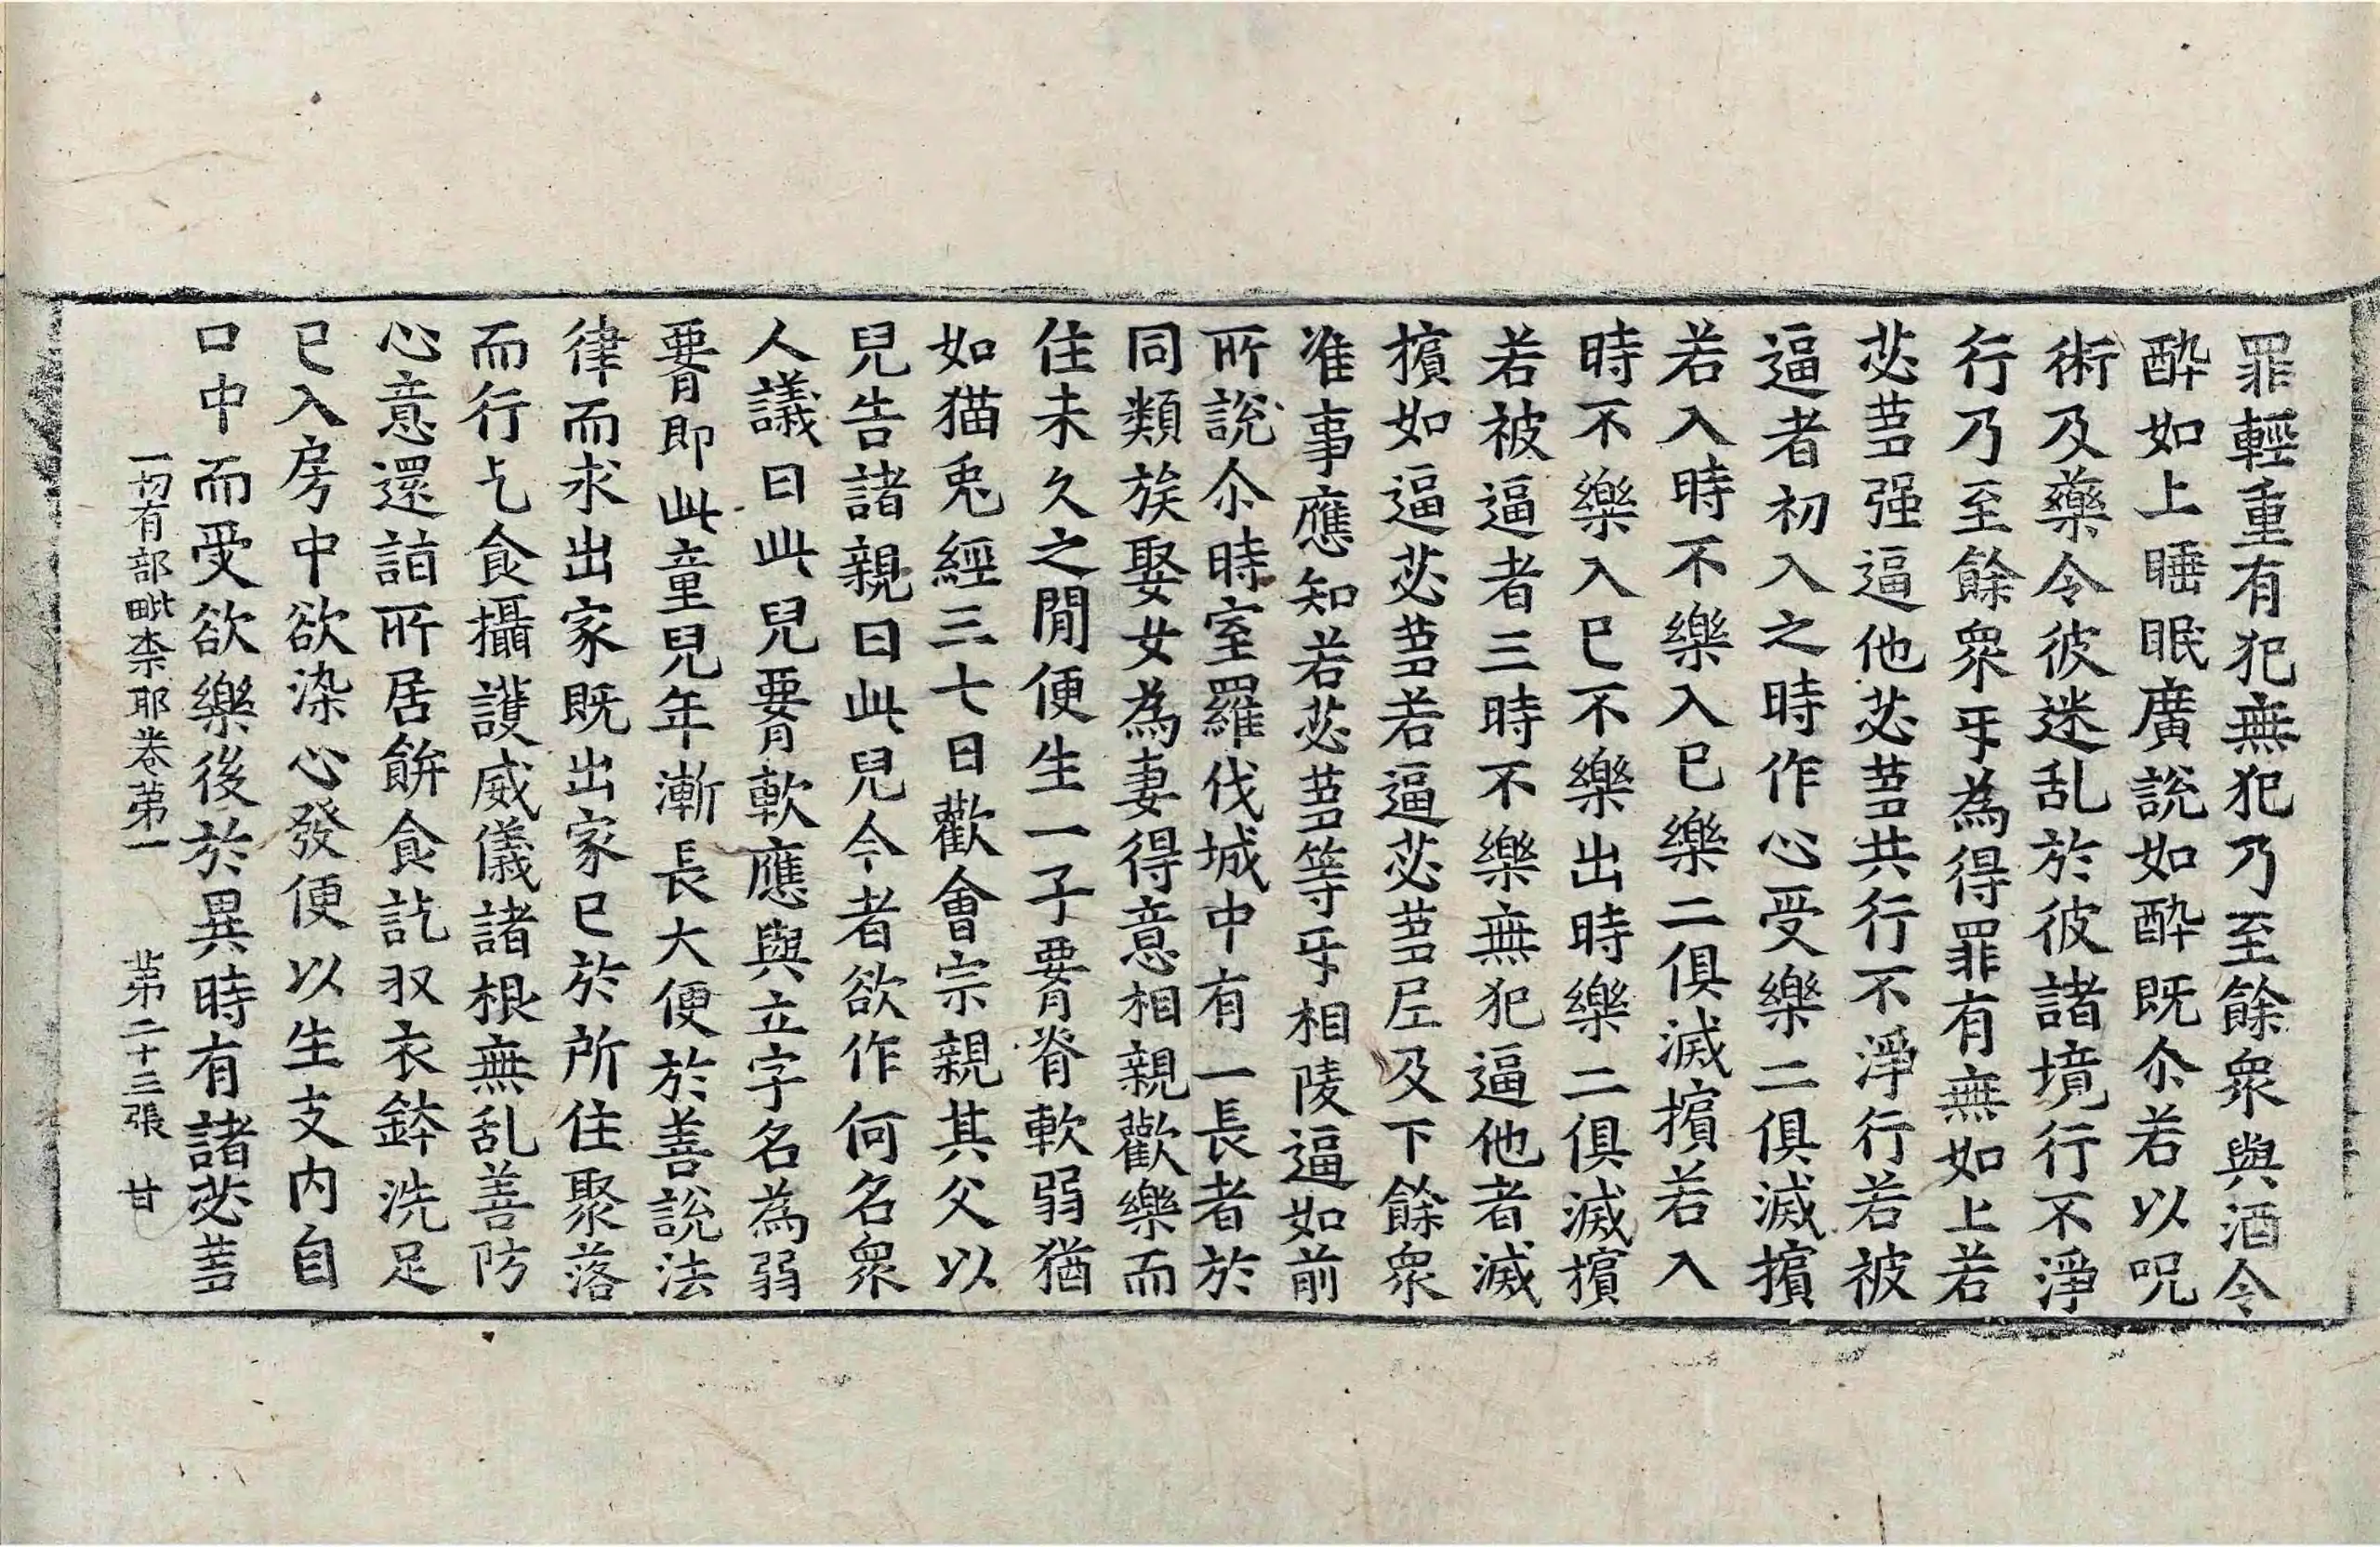 罪輕重有犯無犯乃至餘衆與酒令
酔如上睡眠廣說如酔既尒若以呪
術及藥令彼迷乱於彼諸境行不淨
行乃至餘衆㸦為得罪有無如上若
苾蒭强逼他苾蒭共行不淨行若被
逼者初入之時作心受樂二俱滅擯
若入時不樂入巳樂二俱滅擯若入
時不樂入巳不樂出時樂二俱滅擯
若被逼者三時不樂無犯逼他者滅
擯如逼苾蒭若逼苾蒭𡰱及下餘衆
准事應知若苾蒭等㸦相陵逼如前
所說尒時室羅伐城中有一長者於
同類族娶女為妻得意相親歡樂而
住未久之閒便生一子䙅脊軟弱猶
如猫兎經三七日歡會宗親其父以
兒告諸親曰此兒今者欲作何名衆
人議曰此兒䙅軟應與立字名為弱
䙅即此童兒年漸長大便於善說法
律而求出家既出家巳於所住聚落
而行乞食攝護威儀諸根無乱善防
心意還詣所居餅食訖収衣鉢洗足
巳入房中欲染心發便以生支内自
口中而受欲樂後於異時有諸苾蒭
一切有部毗柰耶卷苐一　苐二十三張　甘